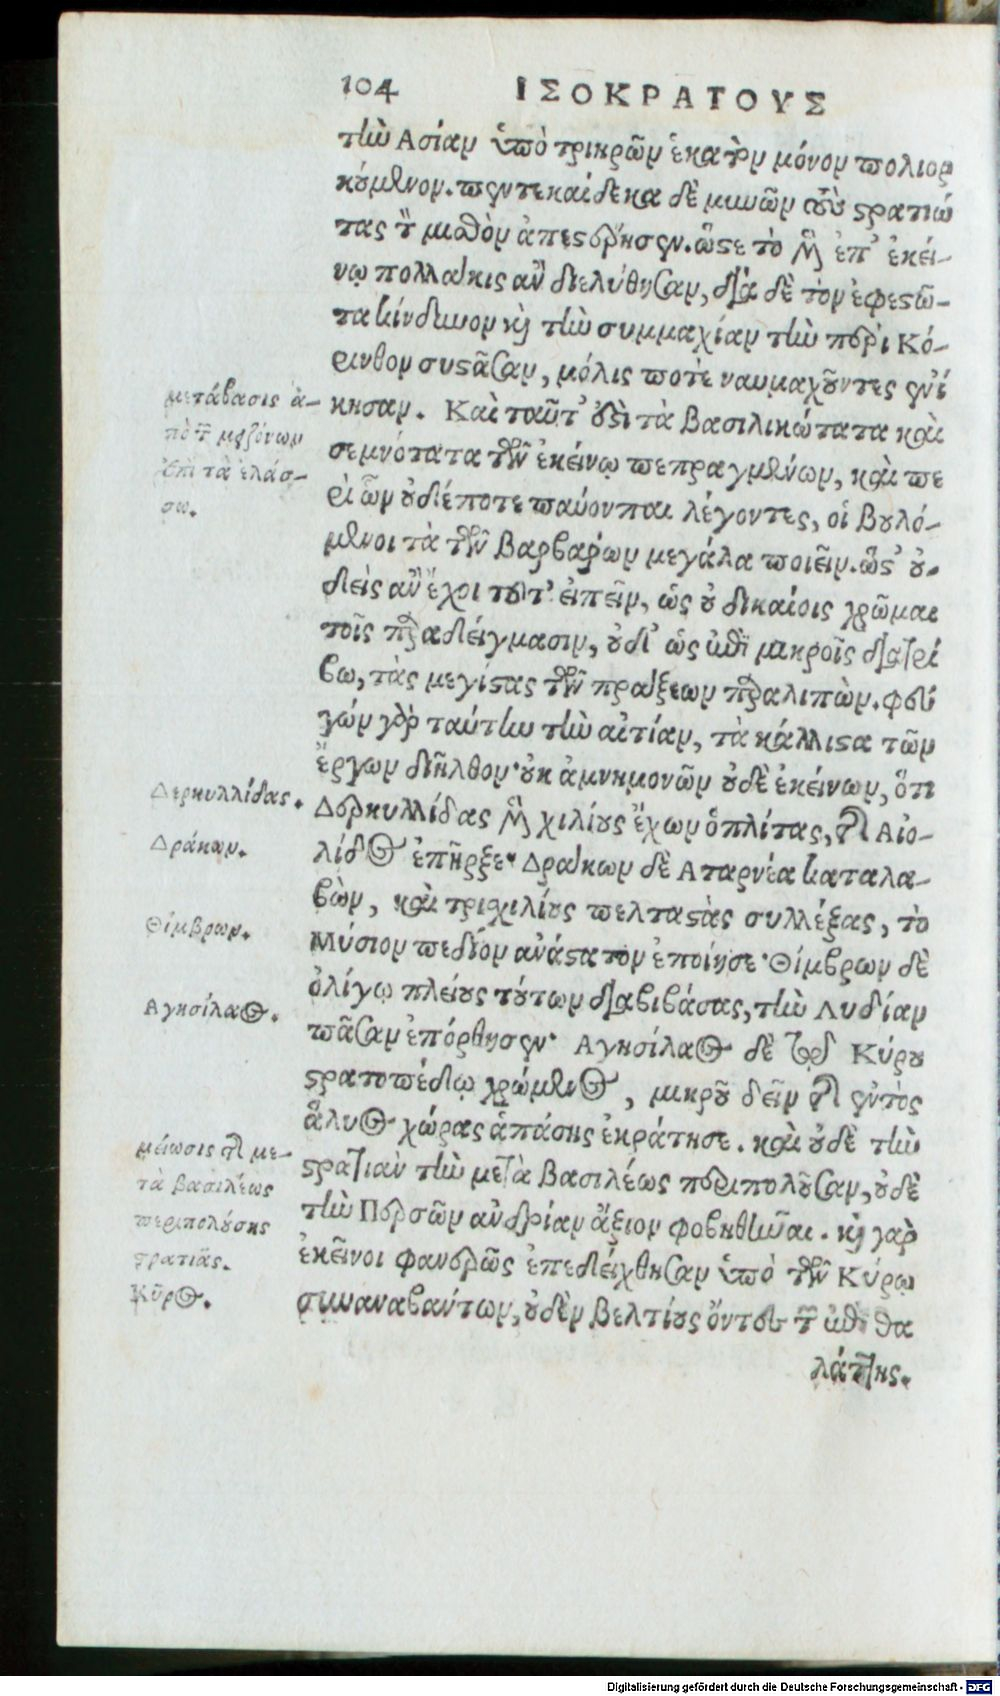 104 ΙΣΟΚΡΑΤΟΥΣ
τὴν Ἀσίαν ὑπὸ τριηρῶν ἑκατὸν μόνον πολιορ
κούμενον. πεντεκαίδεκα δὲ μηνῶν τοὺς στρατιώ
τας τὸν μισθὸν ἀπεστέρησεν. ὥστε τὸ μὲν ἐπ' ἐκεί-
νῳ πολλάκις ἂν διελύθησαν, διὰ δὲ τὸν ἐφεστῶ-
τα κίνδυνον καὶ τὴν συμμαχίαν τὴν περὶ Κό-
ρινθον συστᾶσαν, μόλις ποτὲ ναυμαχοῦντες ἐνί
κησαν. Καὶ ταῦτ' ἐστὶ τὰ βασιλικώτατα καὶ
σεμνότατα τῶν ἐκείνῳ πεπραγμένων, καὶ πε
ρὶ ὧν οὐδέποτε παύονται λέγοντες, οἱ βουλό-
μενοι τὰ τῶν βαρβάρων μεγάλα ποιεῖν. ὥστ' οὐ-
δεὶς ἂν ἔχοι τοῦτ' εἰπεῖν, ὡς οὐ δικαίοις χρῶμαι
τοῖς παραδείγμασιν, οὐδ' ὡς ἐπὶ μικροῖς διατρί
βω, τὰς μεγίστας τῶν πράξεων παραλιπών. φεύ
γων γὰρ ταύτην τὴν αἰτίαν, τὰ κάλλιστα τῶν
ἔργων διῆλθον· οὐκ ἀμνημονῶν οὐδὲ ἐκείνων, ὅτι
Δερκυλλίδας μὲν χιλίους ἔχων ὁπλίτας, τῆς Αἰο-
λίδος ἐπῆρξε· Δράκων δὲ Ἀταρνέα καταλα-
βὼν, καὶ τρισχιλίους πελταστὰς συλλέξας, τὸ
Μύσιον πεδίον ἀνάστατον ἐποίησε· Θίμβρων δὲ
ὀλίγῳ πλείους τούτων διαβιβάσας, τὴν Λυδίαν
πᾶσαν ἐπόρθησεν· Ἀγησίλαος δὲ τῷ Κύρου
στρατοπέδῳ χρώμενος, μικροῦ δεῖν τῆς ἐντὸς
ἅλυος χώρας ἁπάσης ἐκράτησε. καὶ οὐδὲ τὴν
στρατιὰν τὴν μετὰ βασιλέως περιπολοῦσαν, οὐδὲ
τὴν Περσῶν ἀνδρίαν ἄξιον φοβηθῆναι. καὶ γὰρ
ἐκεῖνοι φανερῶς ἐπεδείχθησαν ὑπὸ τῶν Κύρῳ
συναναβάντων, οὐδὲν βελτίους ὄντες τῶν ἐπὶ θα
λάττης.
μετάβασις ἀ-
πὸ τῶν μειζόνων
ἐπὶ τὰ ἐλάσ-
σω.
Δερκυλλίδας.
Δράκων.
Θίμβρων.
Ἀγησίλαος.
μείωσις τῆς με-
τὰ βασιλέως
περιπολούσης
στρατιᾶς.
Κῦρος.
Digitalisierung gefördert durch die Deutsche Forschungsgemeinschaft - DFG